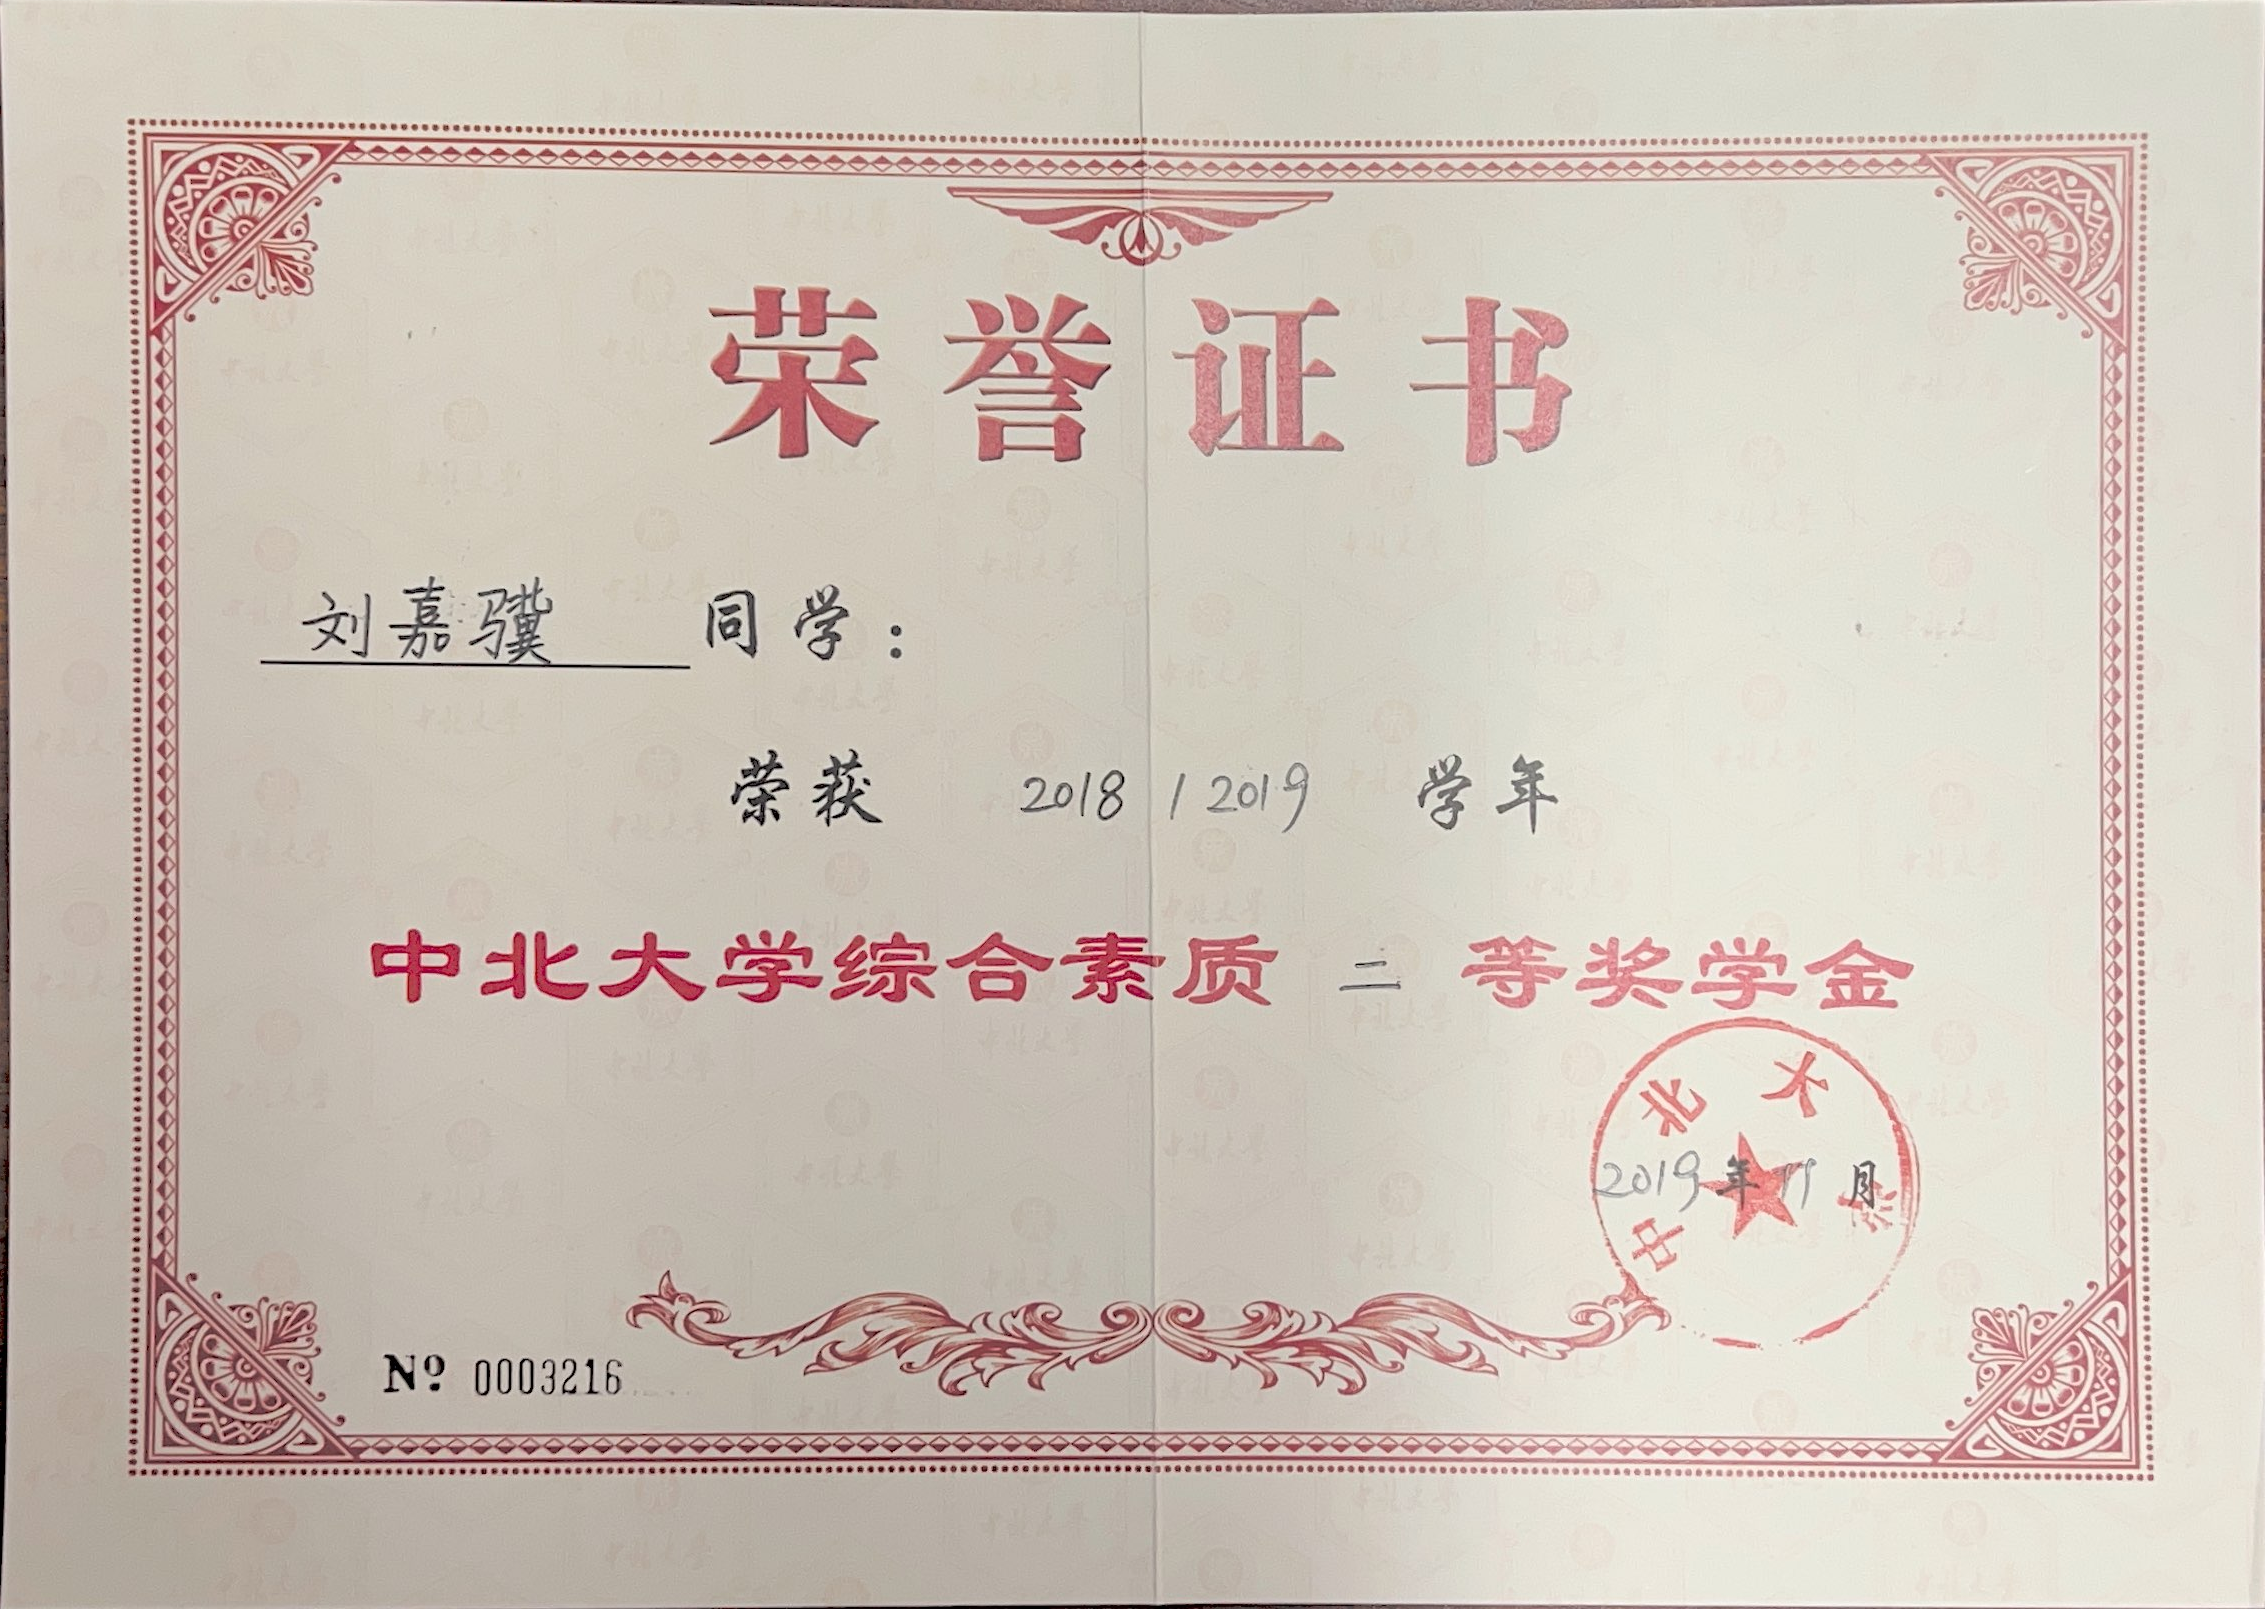 荣誉证书
刘嘉骥 同学：
荣获 2018 / 2019 学年
中北大学综合素质 二 等奖学金
中北大学
2019年11月
Nº 0003216